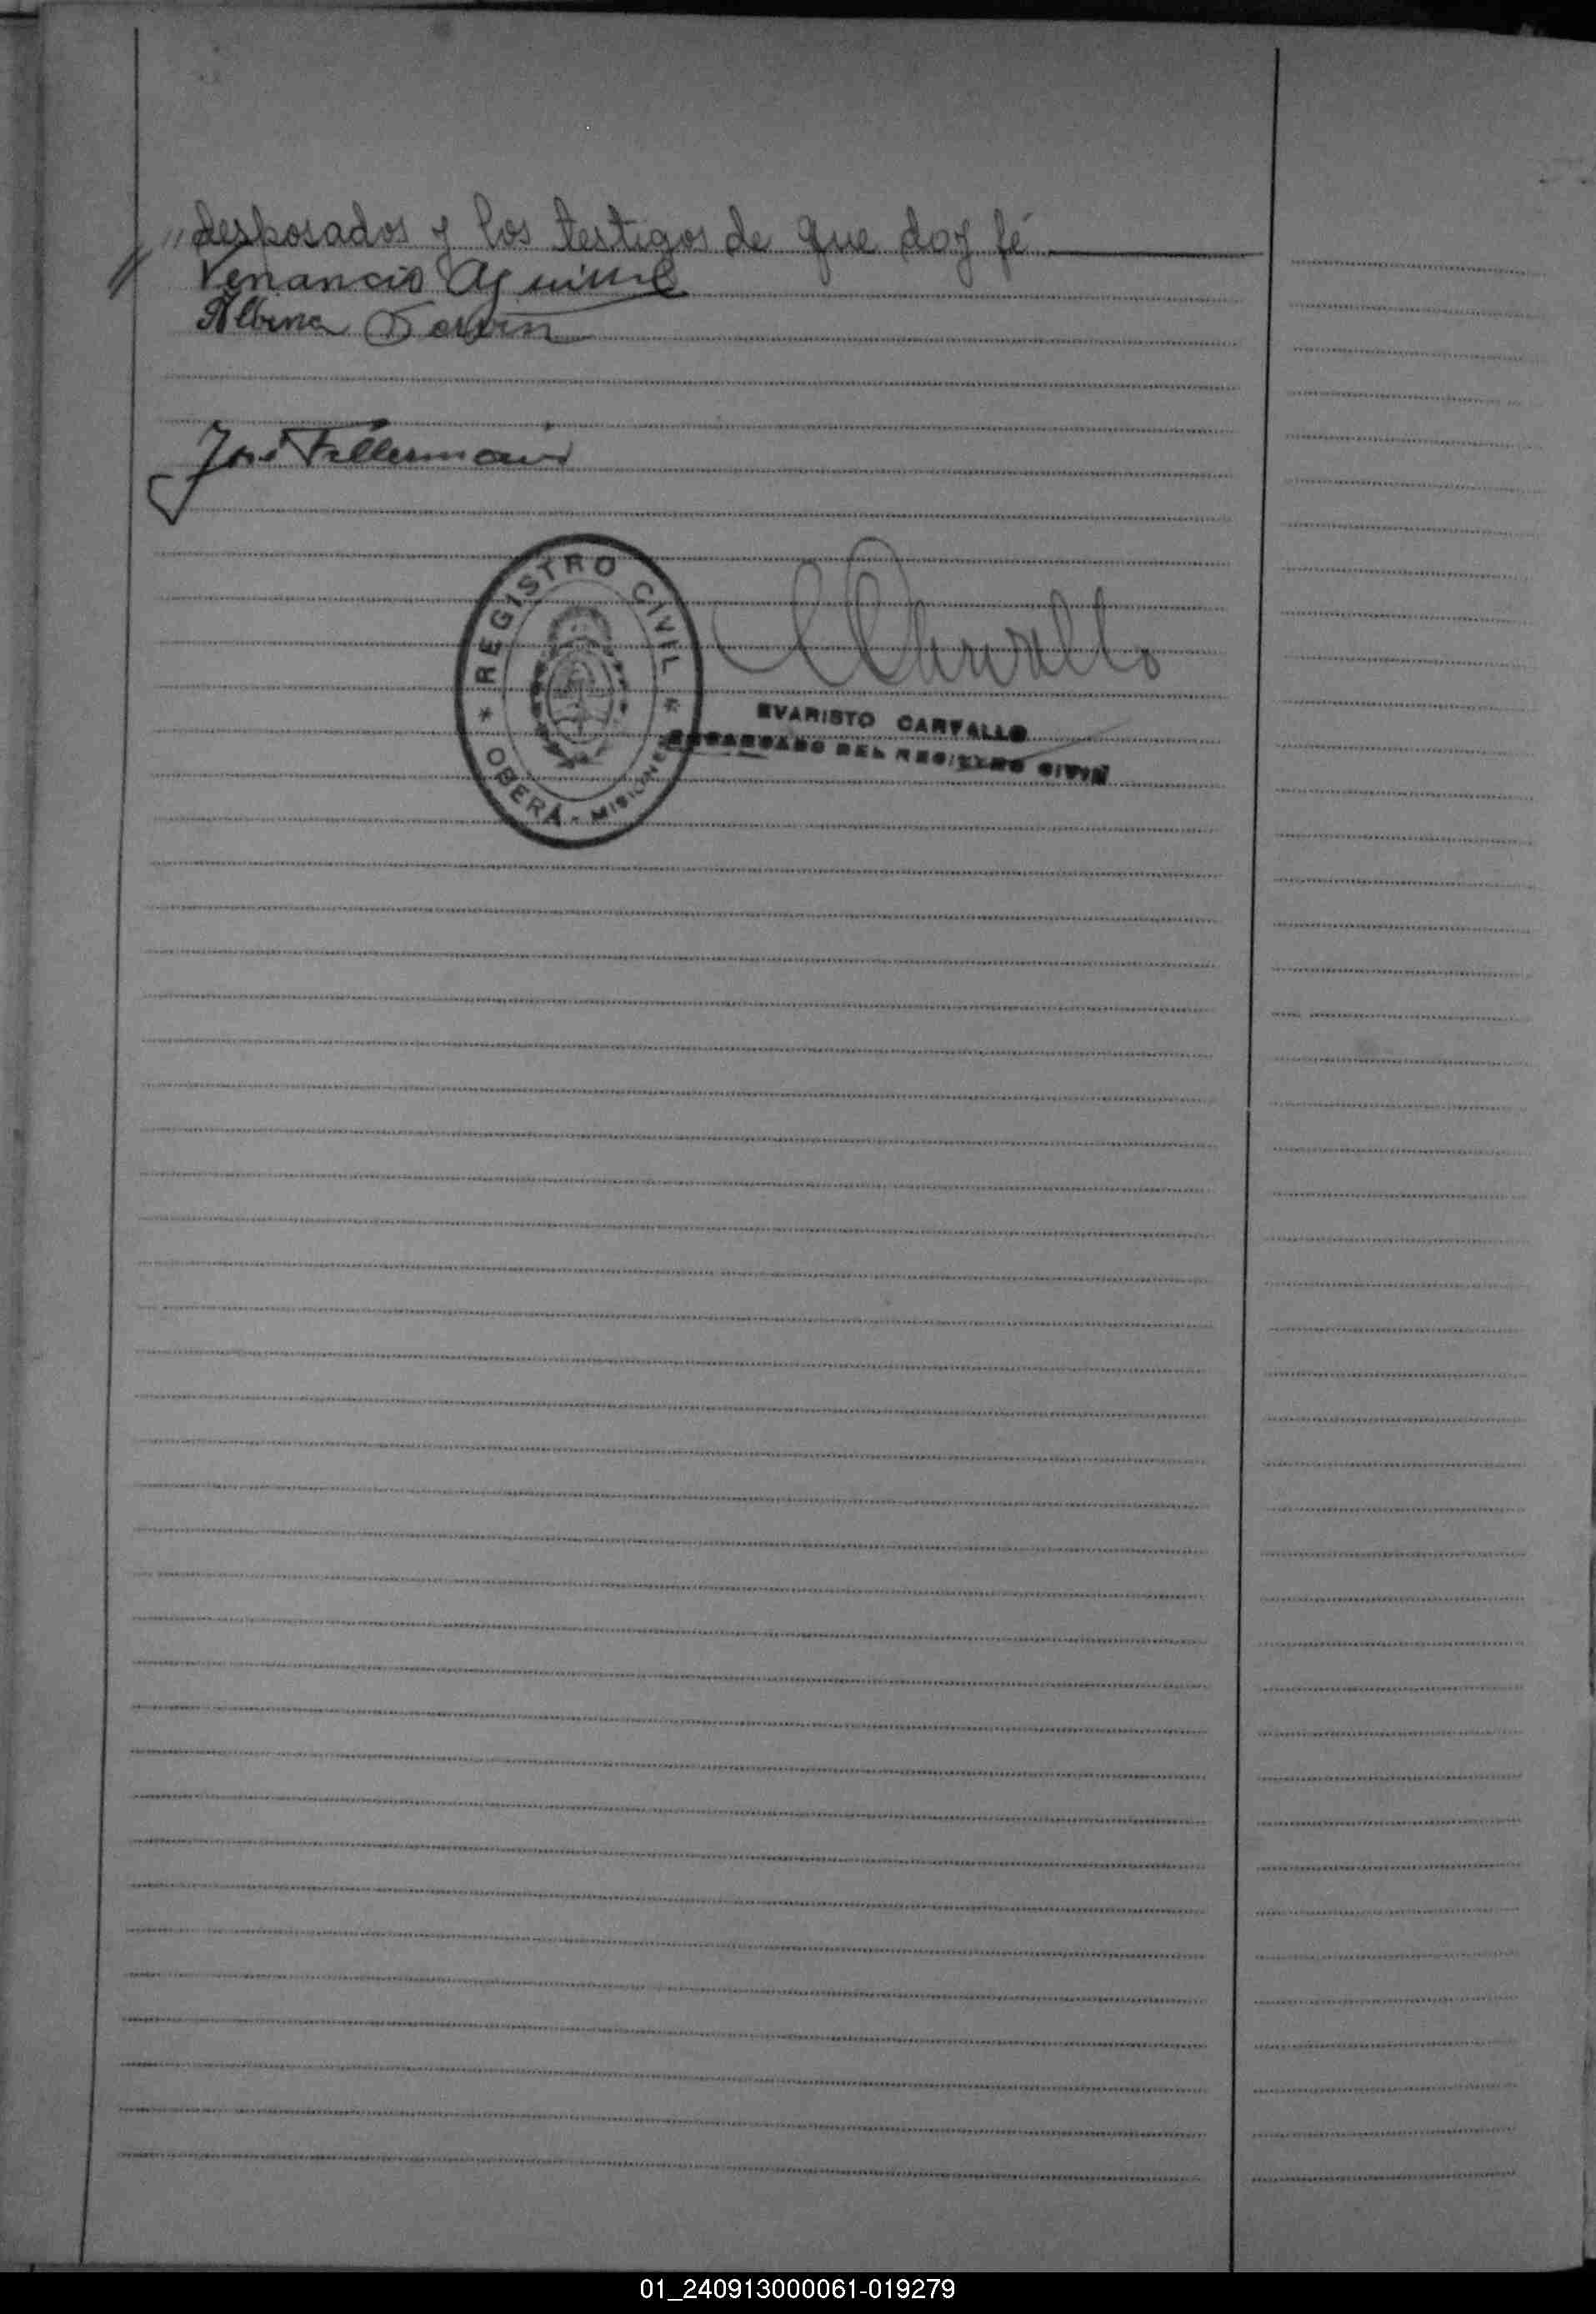 "desposados y los testigos de que doy fé
Venancio Aguirre
Albina
José
REGISTRO CIVIL
OBERÁ - MISIONES
Carvallo
EVARISTO CARVALLO
ENCARGADO DEL REGISTRO CIVIL
01_240913000061-019279